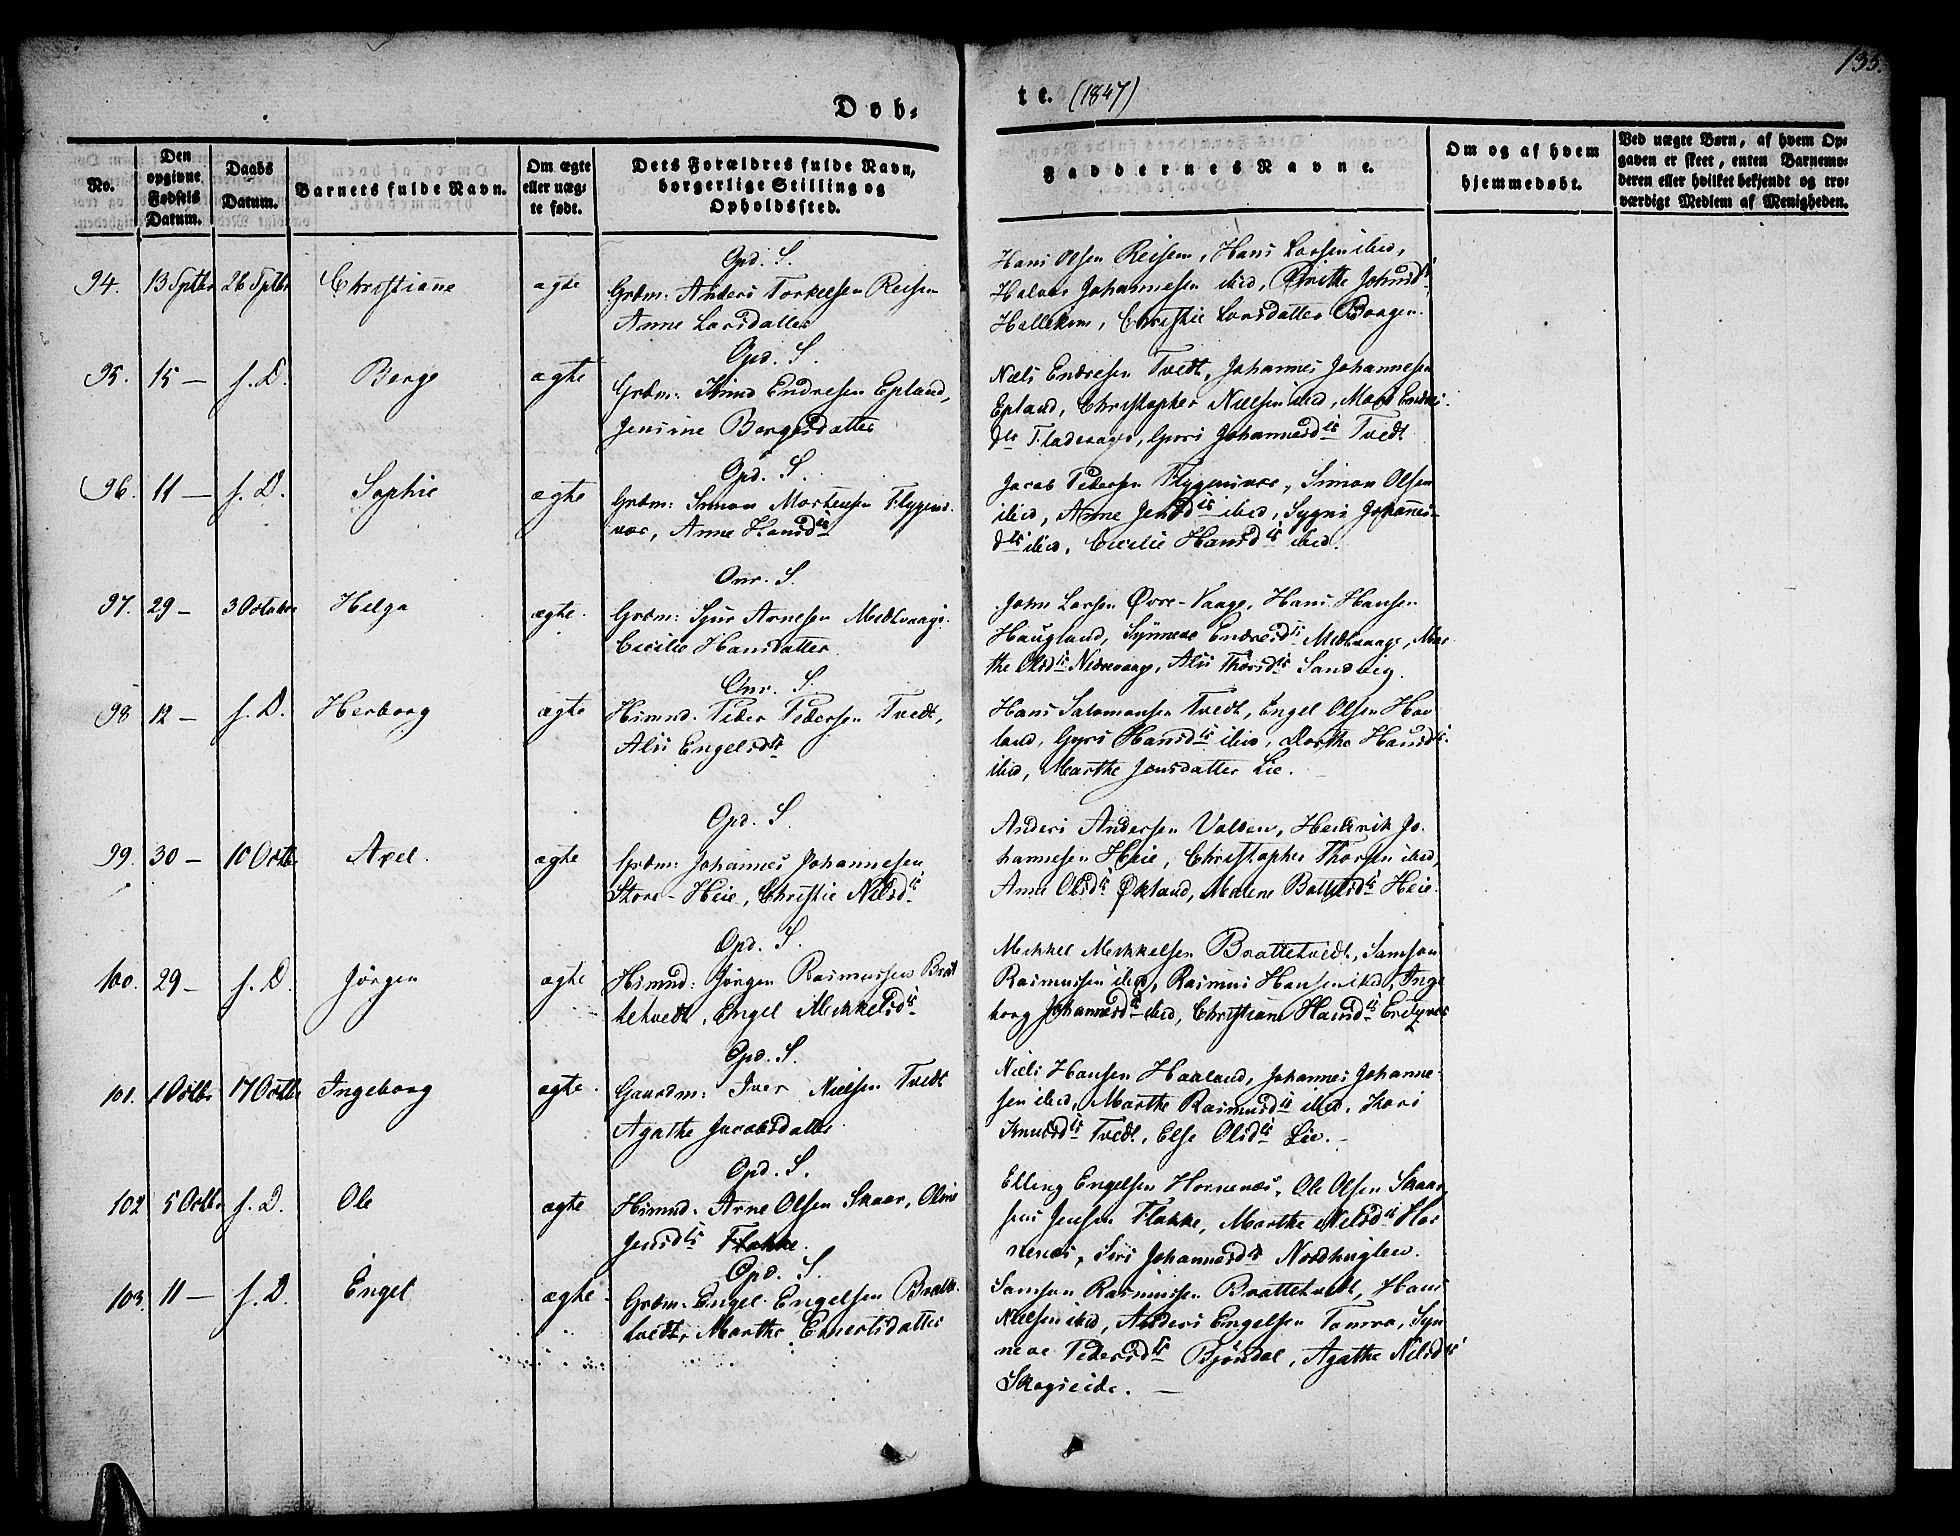 135.
Døb-
te. (1847)
No.
Den opgivne Fødsels Datum.
Daabs Datum.
Barnets fulde Navn.
Om ægte eller uæg-
te født.
Dets Forældres fulde Navn,
borgerlige Stilling og
Opholdssted.
Faddernes Navne.
Om og af hvem
hjemmedøbt.
Ved uægte Børn, af hvem Op-
gaven er skeet, enten Barnemo-
deren eller hvilket bekjendt og tro-
værdigt Medlem af Menigheden.
94. 13 Sptbr 26 Sptbr Christiane ægte
Opd. S.
Grdm: Anders Torkelsen Reisen
Anne Larsdatter
Hans Olsen Reisen, Hans Larsen ibid,
Halvor Johannesen ibid, Johnsd
Christie Larsdatter
95. 15 — s. D. Berge ægte
Opd. S.
Grdm: Knud Endresen Epland,
Jensine Bergesdatter
Niels Endresen Tvedt, Johannes Johannesen
Epland, Christopher Nielsen ibid,
Johannesdtr Tvedt
96. 11 — s. D. Sophie ægte
Opd. S.
Grdm: Simon Mortensen Flygens-
vær, Anne Hansdtr
Jacob Pedersen Flygensvær, Simon Olsen
ibid, Anne Jensdtr ibid, Sygni Johannes-
dtr ibid, Cecilie Hansdtr ibid.
97. 29 — 3 October Helga ægte.
Onr. S.
Grdm: Sjur Arnesen Medtvaage
Cecilie Hansdatter
John Larsen Øvre-Vaage, Hans Hansen
Haugland, Synneve Endresdtr Medtvaage, Mar-
the Olsdtr Nedrevaage, Alis Thorsdtr Sandvig.
98 12 — s. D. Herborg ægte
Onr. S.
Hsmnd. Peder Pedersen Tvedt,
Alis Engelsdtr
Hans Salomonsen Tvedt, Engel Olsen Hov-
land, Gyri Hansdtr ibid, Dorthe Hansdtr
ibid, Marthe Jensdatter Lie.
99. 30 — 10 Octb Axel. ægte
Opd. S
Grdm: Johannes Johannesen
Store-Heie, Christie Nilsdtr
Anders Andersen Valden, Hendrik Jo-
hannesen Heie, Christopher Thorsen ibid,
Anne Olsdtr Økland, Malene Heie
100. 29 — s. D. Jørgen ægte
Opd. S.
Hsmnd: Jørgen Rasmussen Brat-
tetvedt, Engel Mikkelsdtr
Mikkel Mikkelsen Brattetvedt, Samson
Rasmussen ibid, Rasmus Hansen ibid, Inge-
borg Johannesdtr ibid, Christiane Hansdtr
101. 1 Octbr 17 Octbr Ingeborg ægte.
Opd. S.
Gaardm: Iver Nielsen Tvedt
Agathe Jacobsdatter
Niels Hansen Haaland, Johannes Johanne-
sen ibid, Marthe Rasmusdtr ibid, Kari
Knudsdtr Tvedt, Else Olsdtr Lie. —
102 5 Octbr s. D. Ole ægte
Opd. S.
Hsmnd. Arne Olsen Skaar, Oline
Jensdtr Flakke.
Elling Engelsen Hornenæs, Ole Olsen Skaar,
Jens Jensen Flakke, Marthe Nilsdtr Hor-
nenæs, Siri Johannesdtr Nordhuglen.
103. 11 — s. D. Engel ægte
Opd. S.
Grdm. Engel Engelsen Bratte-
tvedt, Marthe Ennertsdatter
Samson Rasmussen Brattetvedt, Hans
Nielsen ibid, Anders Engelsen Tomra, Syn-
neve Pedersdtr Bjøndal, Agathe Nilsdtr
Skogseide. —